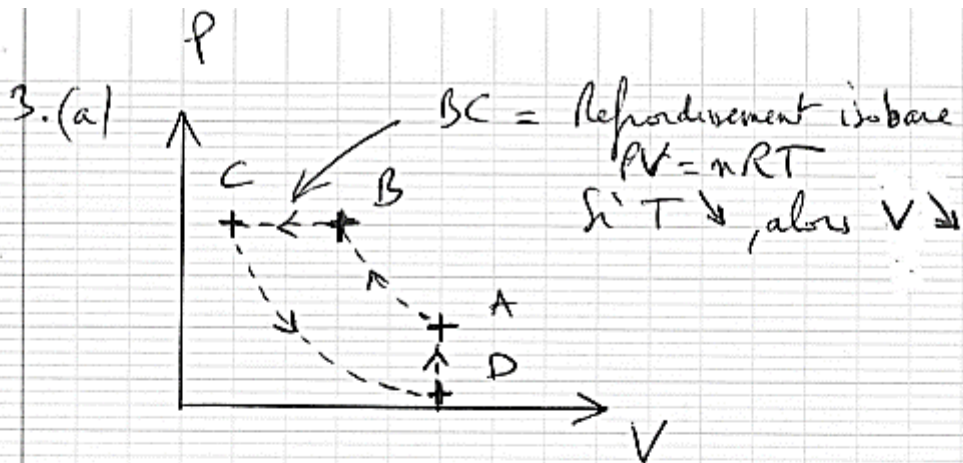 P
3.(a)
BC = Refroidissement isobare
PV = nRT
Si T ↘, alors V ↘
C
B
A
D
V